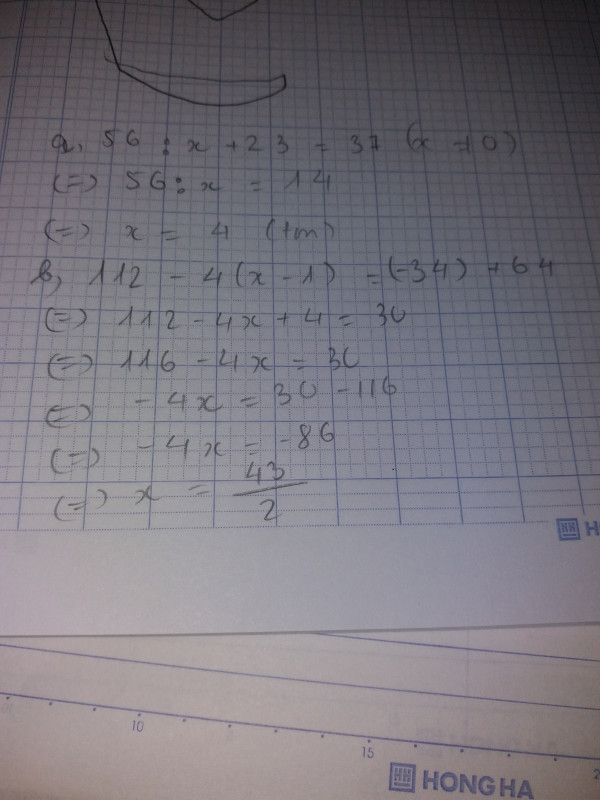 a, 56 : x + 23 = 37 (x ≠ 0)
(=) 56 : x = 14
(=) x = 4 (tm)
b, 112 - 4(x - 1) = (-34) + 64
(=) 112 - 4x + 4 = 30
(=) 116 - 4x = 30
(=) - 4x = 30 - 116
(=) - 4x = -86
(=) x = 43/2
10
15
HONG HA